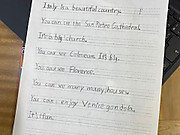 Italy is a beautiful country.
You can see the San Pietro Cathedral.
It is a big church.
You can see Colosseum in Italy.
You can see Florence.
You can see many many houses.
You can enjoy Venice gondola.
It's fun.